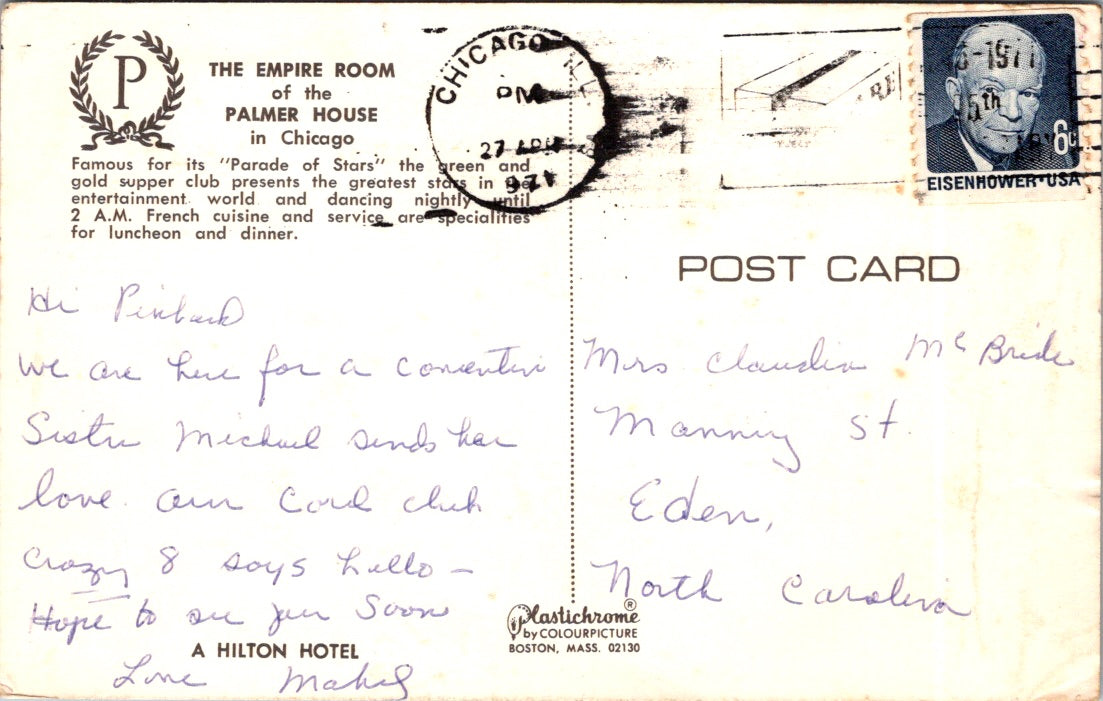 P
THE EMPIRE ROOM
of the
PALMER HOUSE
in Chicago
Famous for its "Parade of Stars" the green and
gold supper club presents the greatest stars in the
entertainment world and dancing nightly until
2 A.M. French cuisine and service are specialities
for luncheon and dinner.
CHICAGO ILL
PM
27 APR
1971
-1971
25th
6c
EISENHOWER·USA
POST CARD
Hi
We are here for a convention
Sister Michael sends her
love. Our Card club
Crazy 8 says hello —
Hope to see you Soon
Love Mabel
Mrs Claudia McBride
Manning St.
Eden,
North Carolina
A HILTON HOTEL
Plastichrome®
by COLOURPICTURE
BOSTON, MASS. 02130